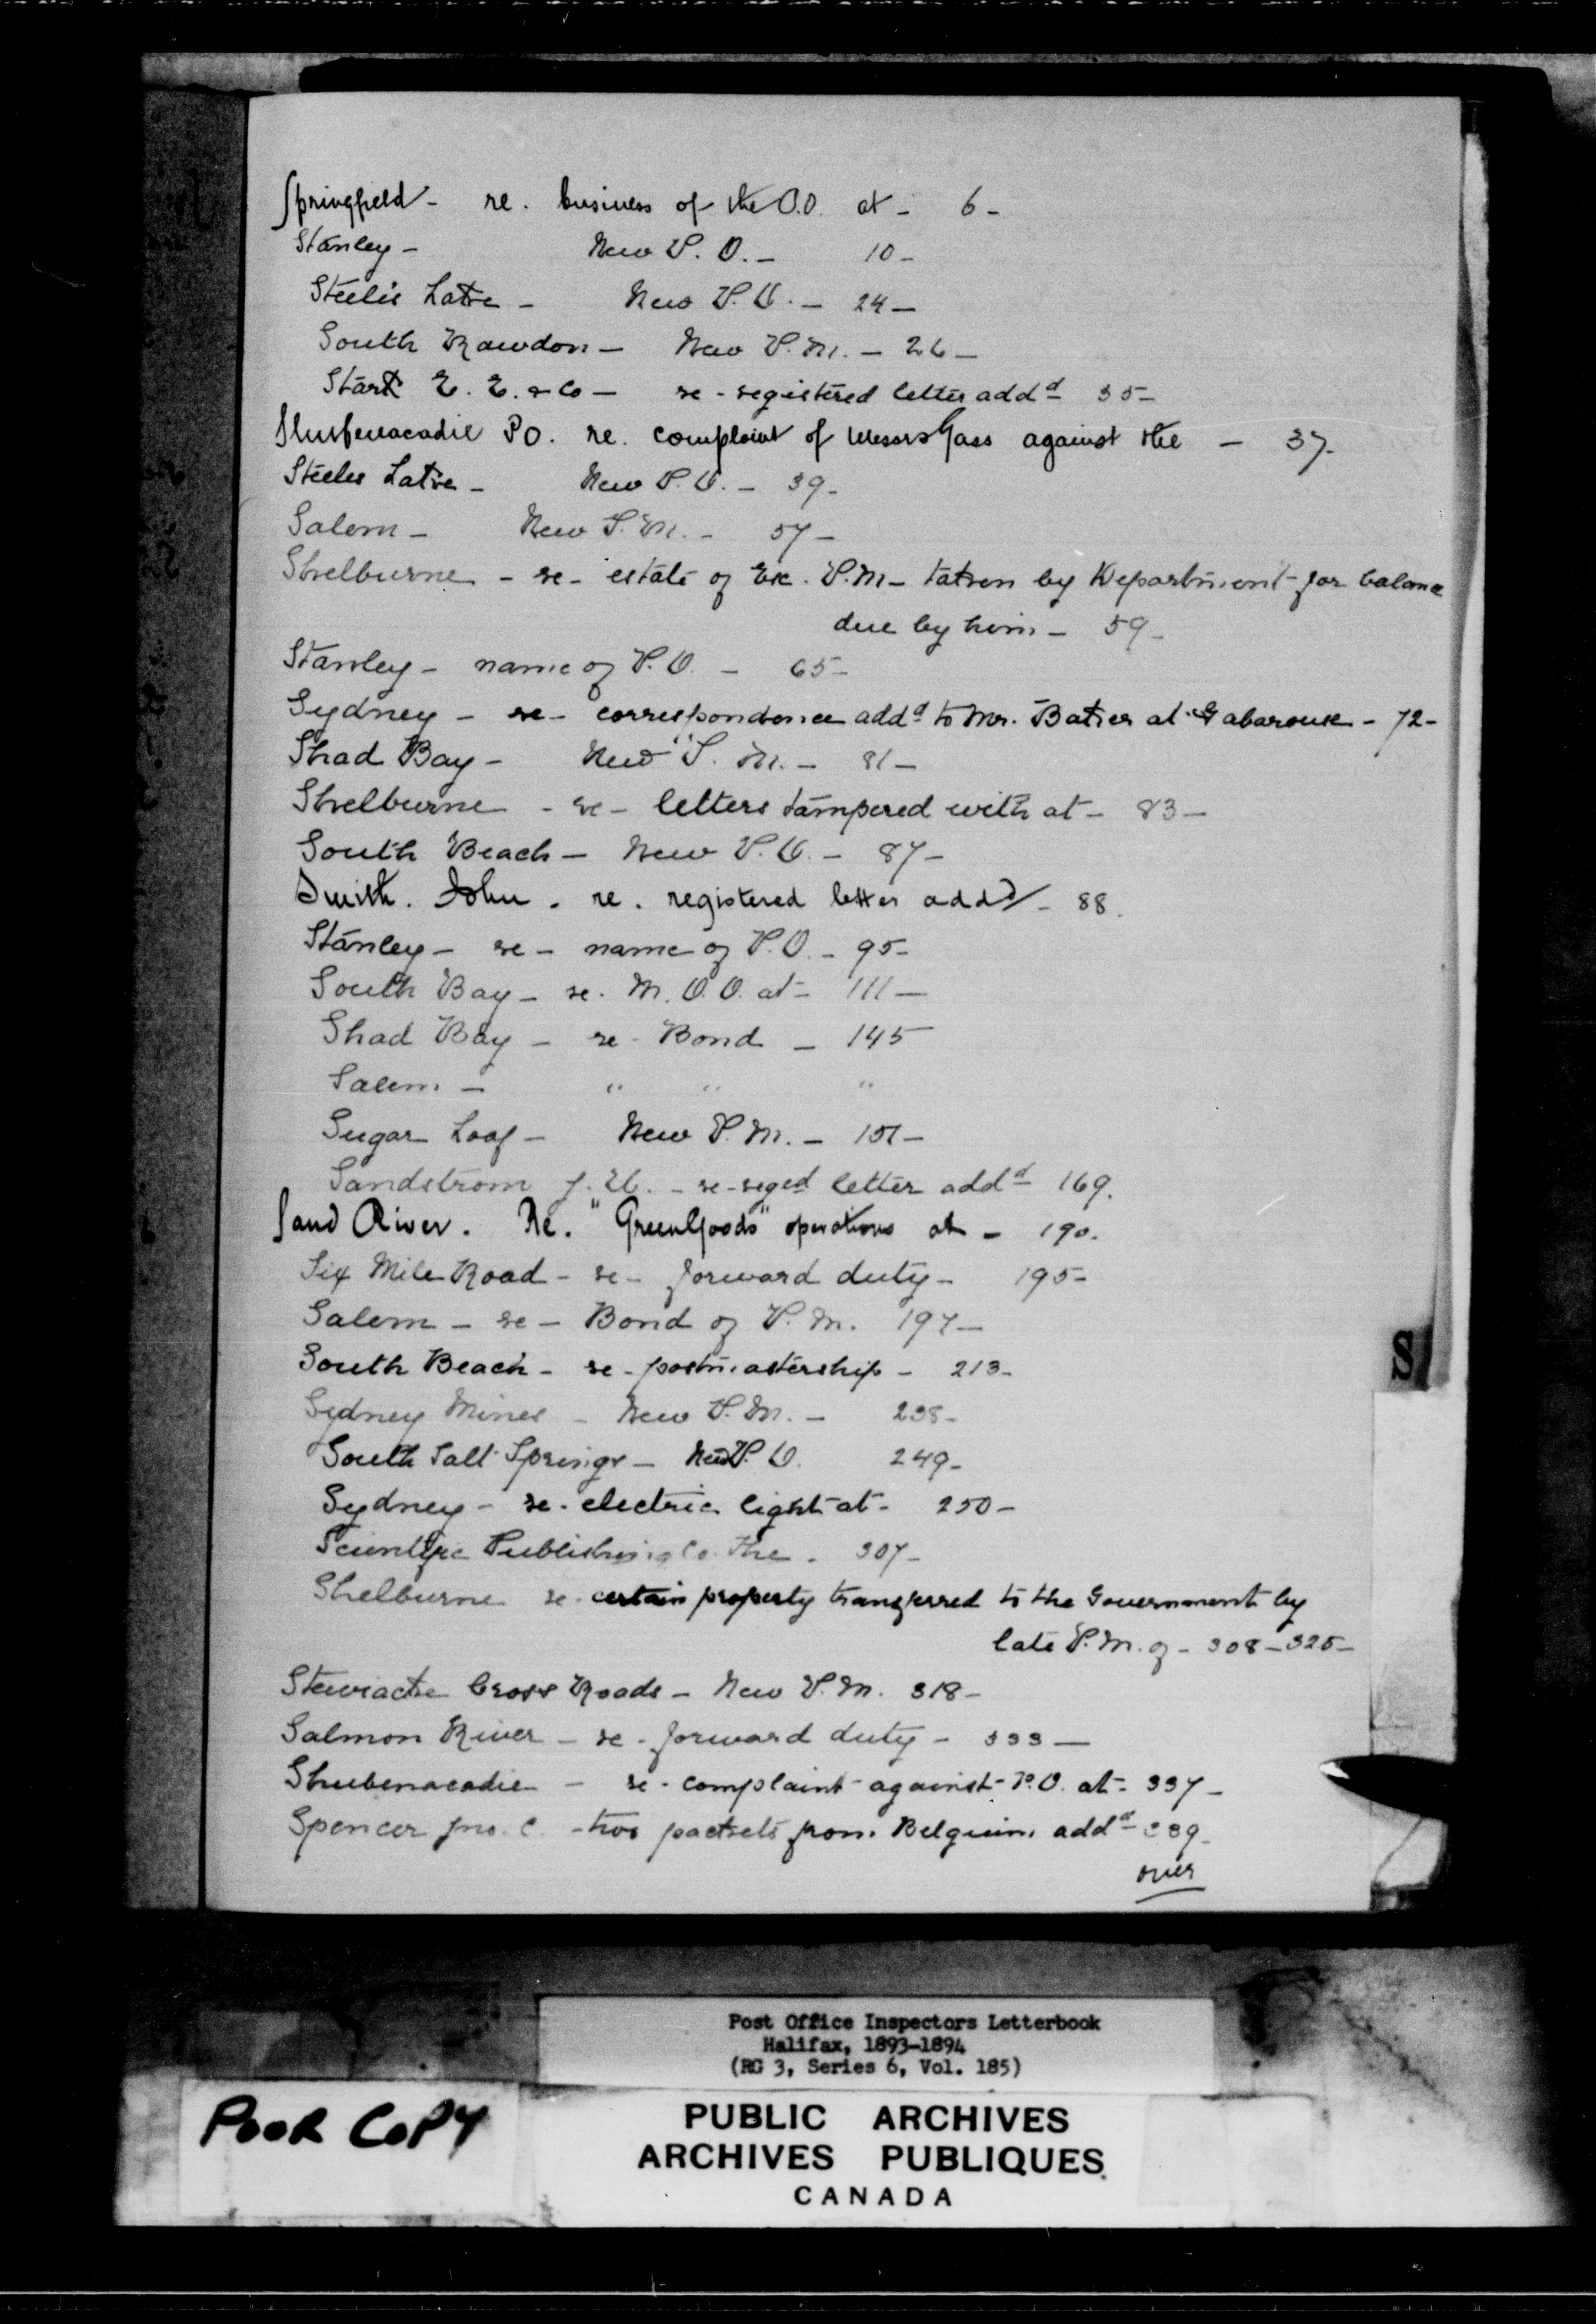 Springfield - re. business of the P.O. at - 6 -
Stanley - New P. O. - 10 -
Steele's Lake - New P. O. - 24 -
South Rawdon - New P. M. - 26 -
Stark E. E. & Co - re - registered letter addd 35 -
Shubenacadie P O. re. complaint of Messrs Gass against the - 37 -
Steeles Lake - New P. O. - 39 -
Salem - New P. M. - 57 -
Shelburne - re - estate of Ex. P. M - taken by Department for balance
due by him - 59 -
Stanley - name of P. O. - 65 -
Sydney - re - correspondence addd to Mr. Baker at Gabarouse - 72 -
Shad Bay - New P. M. - 81 -
Shelburne - re - letters tampered with at - 83 -
South Beach - New P. O. - 87 -
Smith. John. re. registered letter addd - 88.
Stanley - re - name of P. O. - 95 -
South Bay - re. M. O. O. at - 111 -
Shad Bay - re - Bond - 145
Salem - " " "
Sugar Loaf - New P. M. - 151 -
Sandstrom J. - re - reged letter addd 169.
Sand River. Re. "Green Goods" operations at - 190.
Six Mile Road - re - forward duty - 195 -
Salem - re - Bond of P. M. 197 -
South Beach - re - postmastership - 213 -
Sydney Mines - New P. M. - 238 -
South Salt Springs - New P. O. 249 -
Sydney - re - electric light at - 250 -
Scientific Publishing Co. The - 307 -
Shelburne re - certain property transferred to the Government by
late P. M. of - 308 - 325 -
Stewiacke Cross Roads - New P. M. 318 -
Salmon River - re - forward duty - 333 -
Shubenacadie - re - complaint against P. O. at - 337 -
Spencer Jno. C. - two packets from Belgium addd 339 -
over
S
Post Office Inspectors Letterbook
Halifax, 1893-1894
(RG 3, Series 6, Vol. 185)
POOR COPY
PUBLIC ARCHIVES
ARCHIVES PUBLIQUES
CANADA